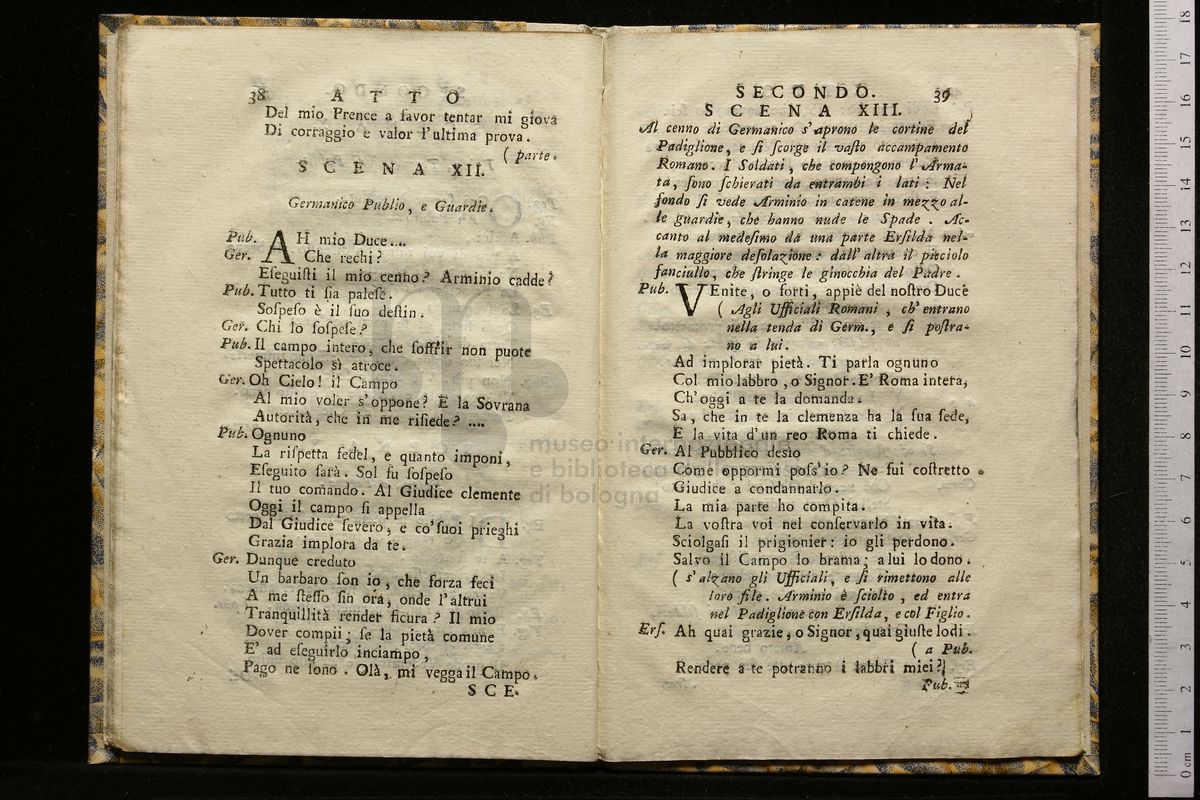 38 ATTO
Del mio Prence a favor tentar mi giova
Di corraggio e valor l'ultima prova.
( parte.
SCENA XII.
Germanico Publio, e Guardie.
Pub. AH mio Duce....
Ger. Che rechi?
Eſeguiſti il mio cenno? Arminio cadde?
Pub. Tutto ti ſia paleſe.
Soſpeſo è il ſuo deſtin.
Ger. Chi lo ſoſpeſe?
Pub. Il campo intero, che ſoffrir non puote
Spettacolo sì atroce.
Ger. Oh Cielo! il Campo
Al mio voler s'oppone? E la Sovrana
Autorità, che in me riſiede? ....
Pub. Ognuno
La riſpetta fedel, e quanto imponi,
Eſeguito ſarà. Sol fu ſoſpeſo
Il tuo comando. Al Giudice clemente
Oggi il campo ſi appella
Dal Giudice ſevero, e co'ſuoi prieghi
Grazia implora da te.
Ger. Dunque creduto
Un barbaro ſon io, che forza feci
A me ſteſſo ſin ora, onde l'altrui
Tranquillità render ſicura? Il mio
Dover compii; ſe la pietà comune
E' ad eſeguirlo inciampo,
Pago ne ſono. Olà, mi vegga il Campo.
SCE.
SECONDO. 39
SCENA XIII.
Al cenno di Germanico s'aprono le cortine del
Padiglione, e ſi ſcorge il vaſto accampamento
Romano. I Soldati, che compongono l'Arma-
ta, ſono ſchierati da entrambi i lati: Nel
fondo ſi vede Arminio in catene in mezzo al-
le guardie, che hanno nude le Spade. Ac-
canto al medeſimo da una parte Erſilda nel-
la maggiore deſolazione: dall'altra il picciolo
fanciullo, che ſtringe le ginocchia del Padre.
Pub. VEnite, o forti, appiè del noſtro Duce
( Agli Ufficiali Romani, ch'entrano
nella tenda di Germ., e ſi poſtra-
no a lui.
Ad implorar pietà. Ti parla ognuno
Col mio labbro, o Signor. E' Roma intera,
Ch'oggi a te la domanda.
Sa, che in te la clemenza ha la ſua ſede,
E la vita d'un reo Roma ti chiede.
Ger. Al Pubblico desìo
Come oppormi poſs'io? Ne fui coſtretto
Giudice a condannarlo.
La mia parte ho compita.
La voſtra voi nel conſervarlo in vita.
Sciolgaſi il prigionier: io gli perdono.
Salvo il Campo lo brama; a lui lo dono.
( s'alzano gli Ufficiali, e ſi rimettono alle
loro file. Arminio è ſciolto, ed entra
nel Padiglione con Erſilda, e col Figlio.
Erſ. Ah quai grazie, o Signor, quai giuſte lodi.
( a Pub.
Rendere a te potranno i labbri miei?
Pub.
museo internazionale
e biblioteca della musica
di bologna
0 cm 1 2 3 4 5 6 7 8 9 10 11 12 13 14 15 16 17 18